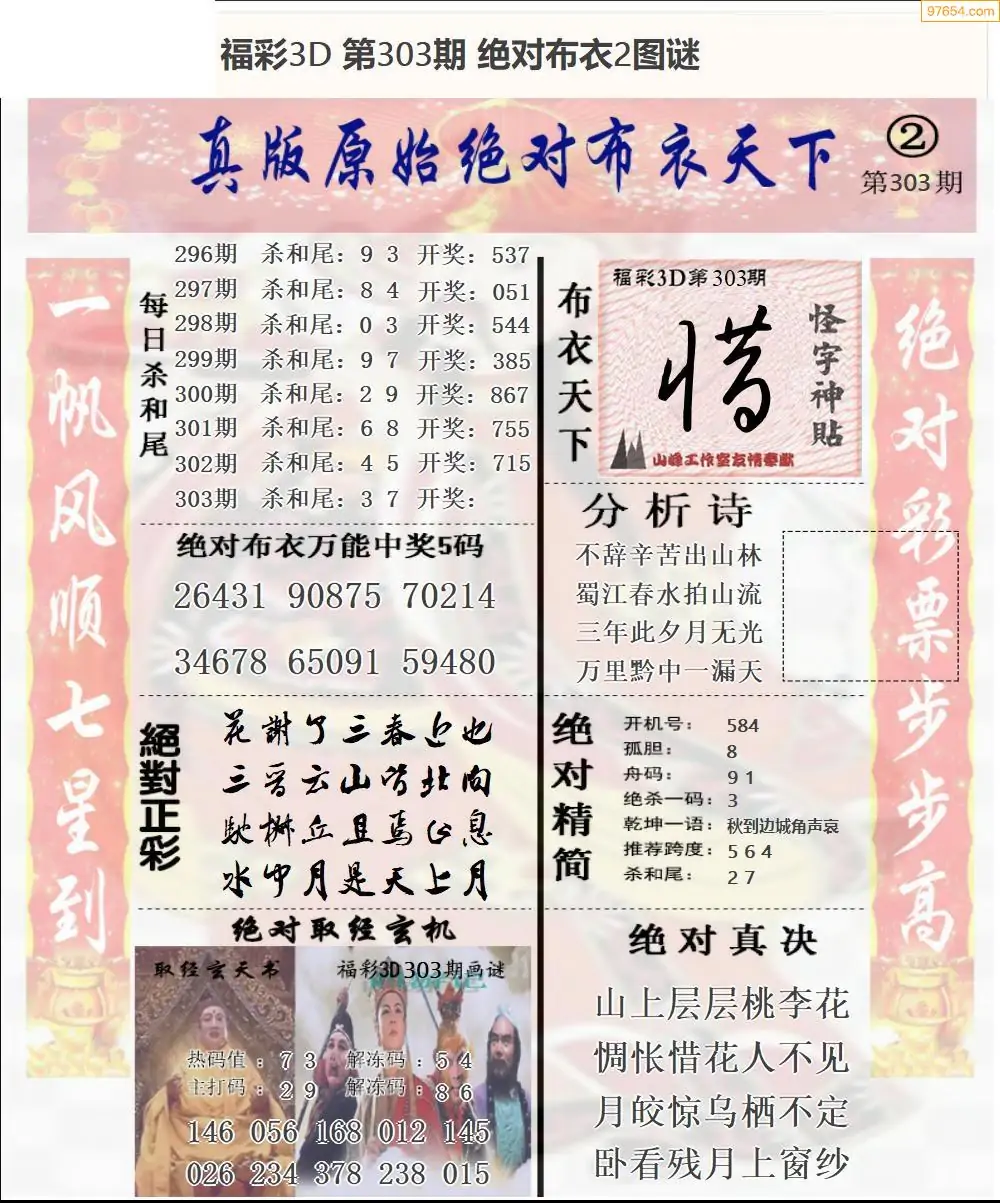 97654.com
福彩3D 第303期 绝对布衣2图谜
真版原始绝对布衣天下
②
第303期
一帆风顺七星到
每日杀和尾
296期 杀和尾：9 3 开奖：537
297期 杀和尾：8 4 开奖：051
298期 杀和尾：0 3 开奖：544
299期 杀和尾：9 7 开奖：385
300期 杀和尾：2 9 开奖：867
301期 杀和尾：6 8 开奖：755
302期 杀和尾：4 5 开奖：715
303期 杀和尾：3 7 开奖：
绝对布衣万能中奖5码
26431 90875 70214
34678 65091 59480
絕對正彩
花謝了三春近也
三晋云山皆北向
水中月是天上月
绝对取经玄机
取经玄天书
福彩3D303期画谜
热码值：7 3 解冻码：5 4
主打码：2 9 解冻码：8 6
146 056 168 012 145
026 234 378 238 015
布衣天下
福彩3D第303期
惜
怪字神貼
山峰工作室友情奉献
分析诗
不辞辛苦出山林
蜀江春水拍山流
三年此夕月无光
万里黔中一漏天
绝对精简
开机号：584
孤胆：8
舟码：9 1
绝杀一码：3
乾坤一语：秋到边城角声哀
推荐跨度：5 6 4
杀和尾：2 7
绝对真决
山上层层桃李花
惆怅惜花人不见
月皎惊乌栖不定
卧看残月上窗纱
绝对彩票步步高